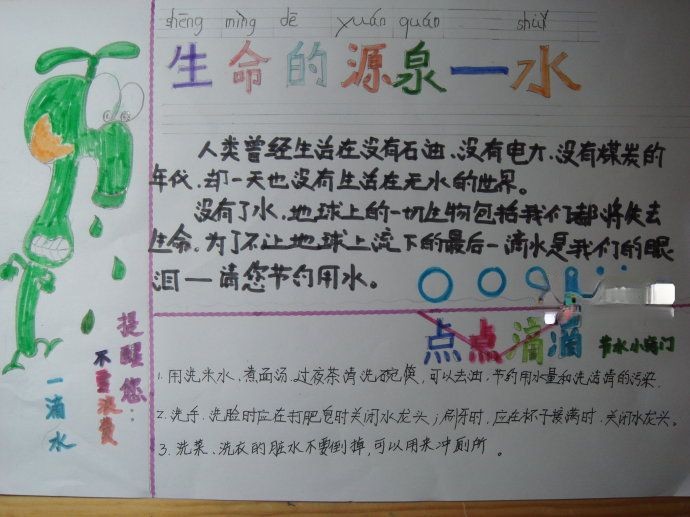 shēng mìng dē yuán quán shuǐ
生命的源泉—水
人类曾经生活在没有石油、没有电大、没有煤炭的
年代，却一天也没有生活在无水的世界。
没有了水，地球上的一切生物包括我们都将失去
生命，为了不让地球上流下的最后一滴水是我们的眼
泪—请您节约用水。
提醒您：
不要浪费
一滴水
点点滴滴 节水小窍门
1. 用洗米水、煮面汤、过夜茶清洗碗筷，可以去油，节约用水量和洗洁精的污染.
2. 洗手、洗脸时应在打肥皂时关闭水龙头；刷牙时，应在杯子接满时，关闭水龙头。
3. 洗菜、洗衣的脏水不要倒掉，可以用来冲厕所。